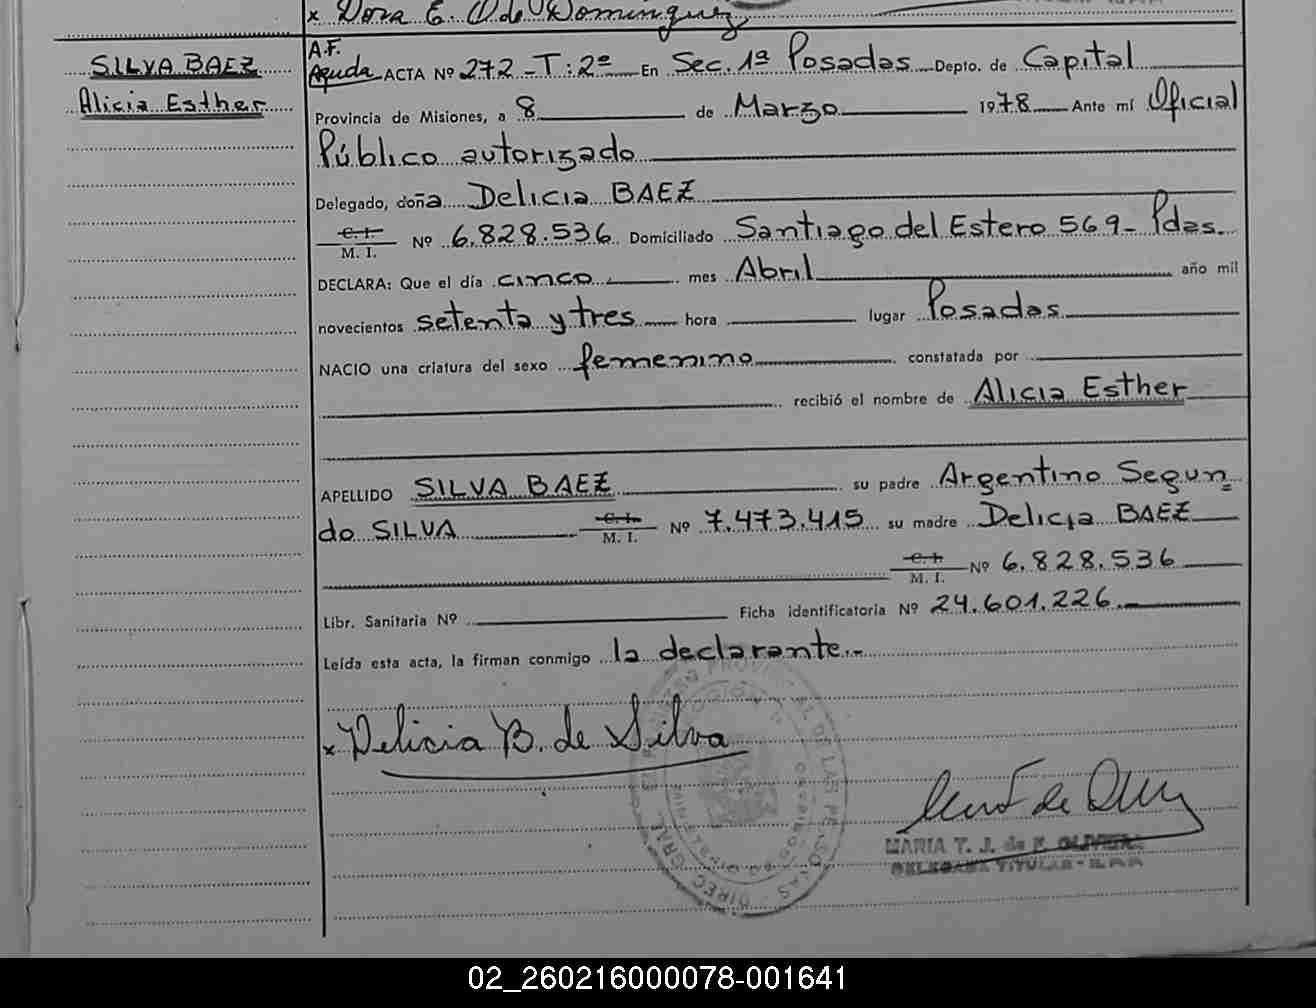 x Dora E. O. de Dominguez
SILVA BAEZ
Alicia Esther
A.F.
Ayuda ACTA Nº 272 - T: 2º En Sec. 1ª Posadas Depto. de Capital
Provincia de Misiones, a 8 de Marzo 1978 Ante mí Oficial
Público autorizado
Delegado, doña Delicia BAEZ
C. I.
M. I. Nº 6.828.536 Domiciliado Santiago del Estero 569 - Pdas.
DECLARA: Que el día cinco mes Abril año mil
novecientos setenta y tres hora lugar Posadas
NACIO una criatura del sexo femenino constatada por
recibió el nombre de Alicia Esther
APELLIDO SILVA BAEZ su padre Argentino Segun
do SILVA C. I. M. I. Nº 7.473.415 su madre Delicia BAEZ
C. I. M. I. Nº 6.828.536
Libr. Sanitaria Nº Ficha identificatoria Nº 24.601.226.-
Leída esta acta, la firman conmigo la declarante.-
x Delicia B. de Silva
DE LAS PERSONAS
MARIA T. J. de F. OLIVEIRA
DELEGADA TITULAR
02_260216000078-001641